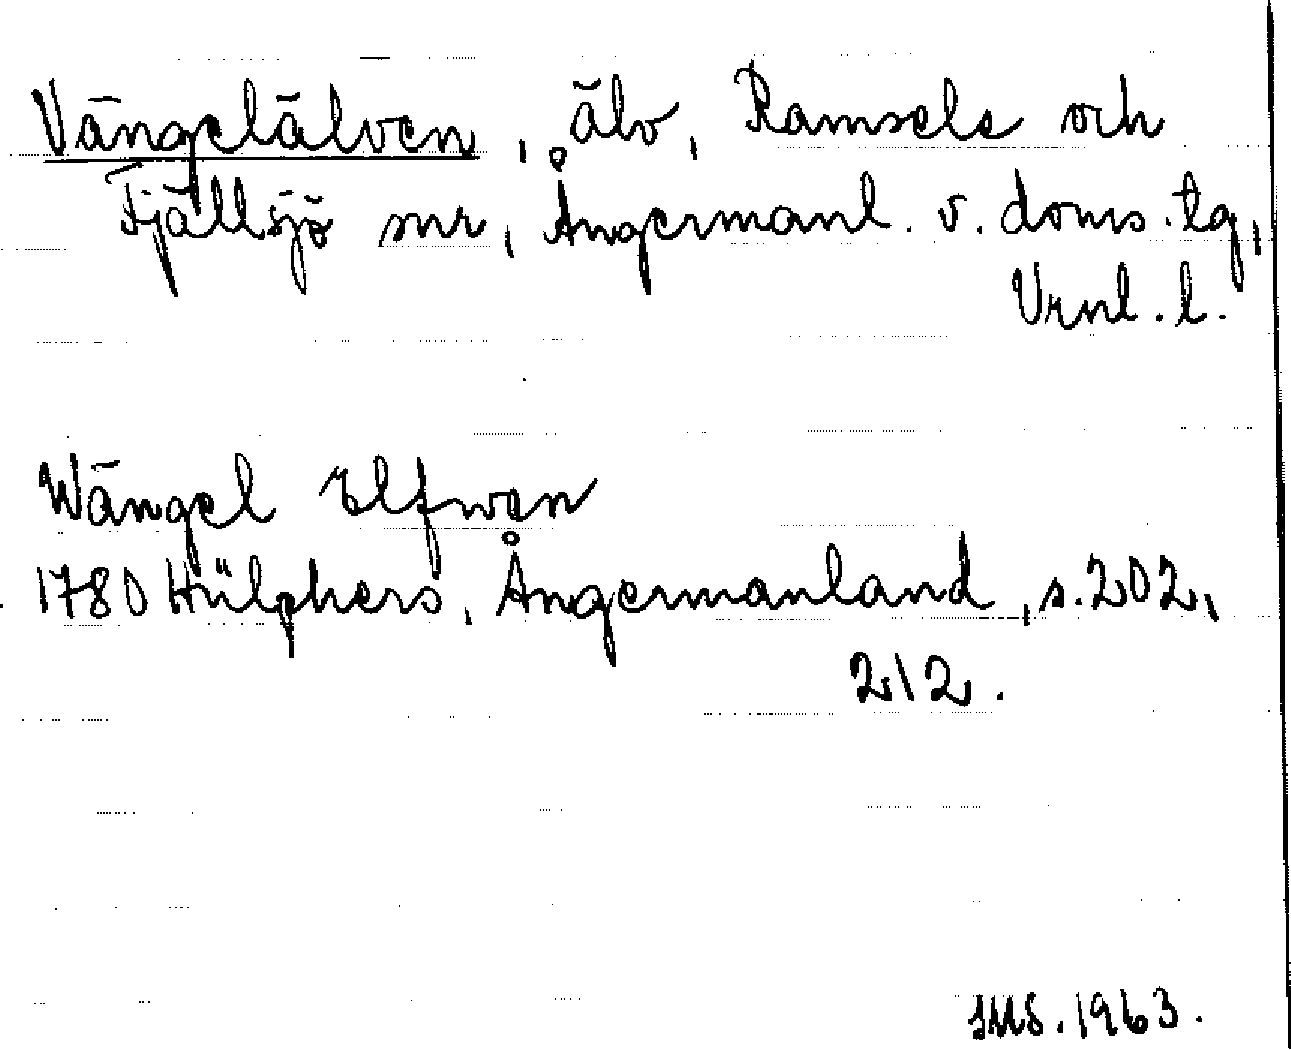 Vängelälven, älv, Ramsele och
Fjällsjö snr, Ångermanl. v. doms.tg,
Vrnl. l.
Wängel Elfwen
1780 Hülphers, Ångermanland, s. 202,
212.
IMS. 1963.